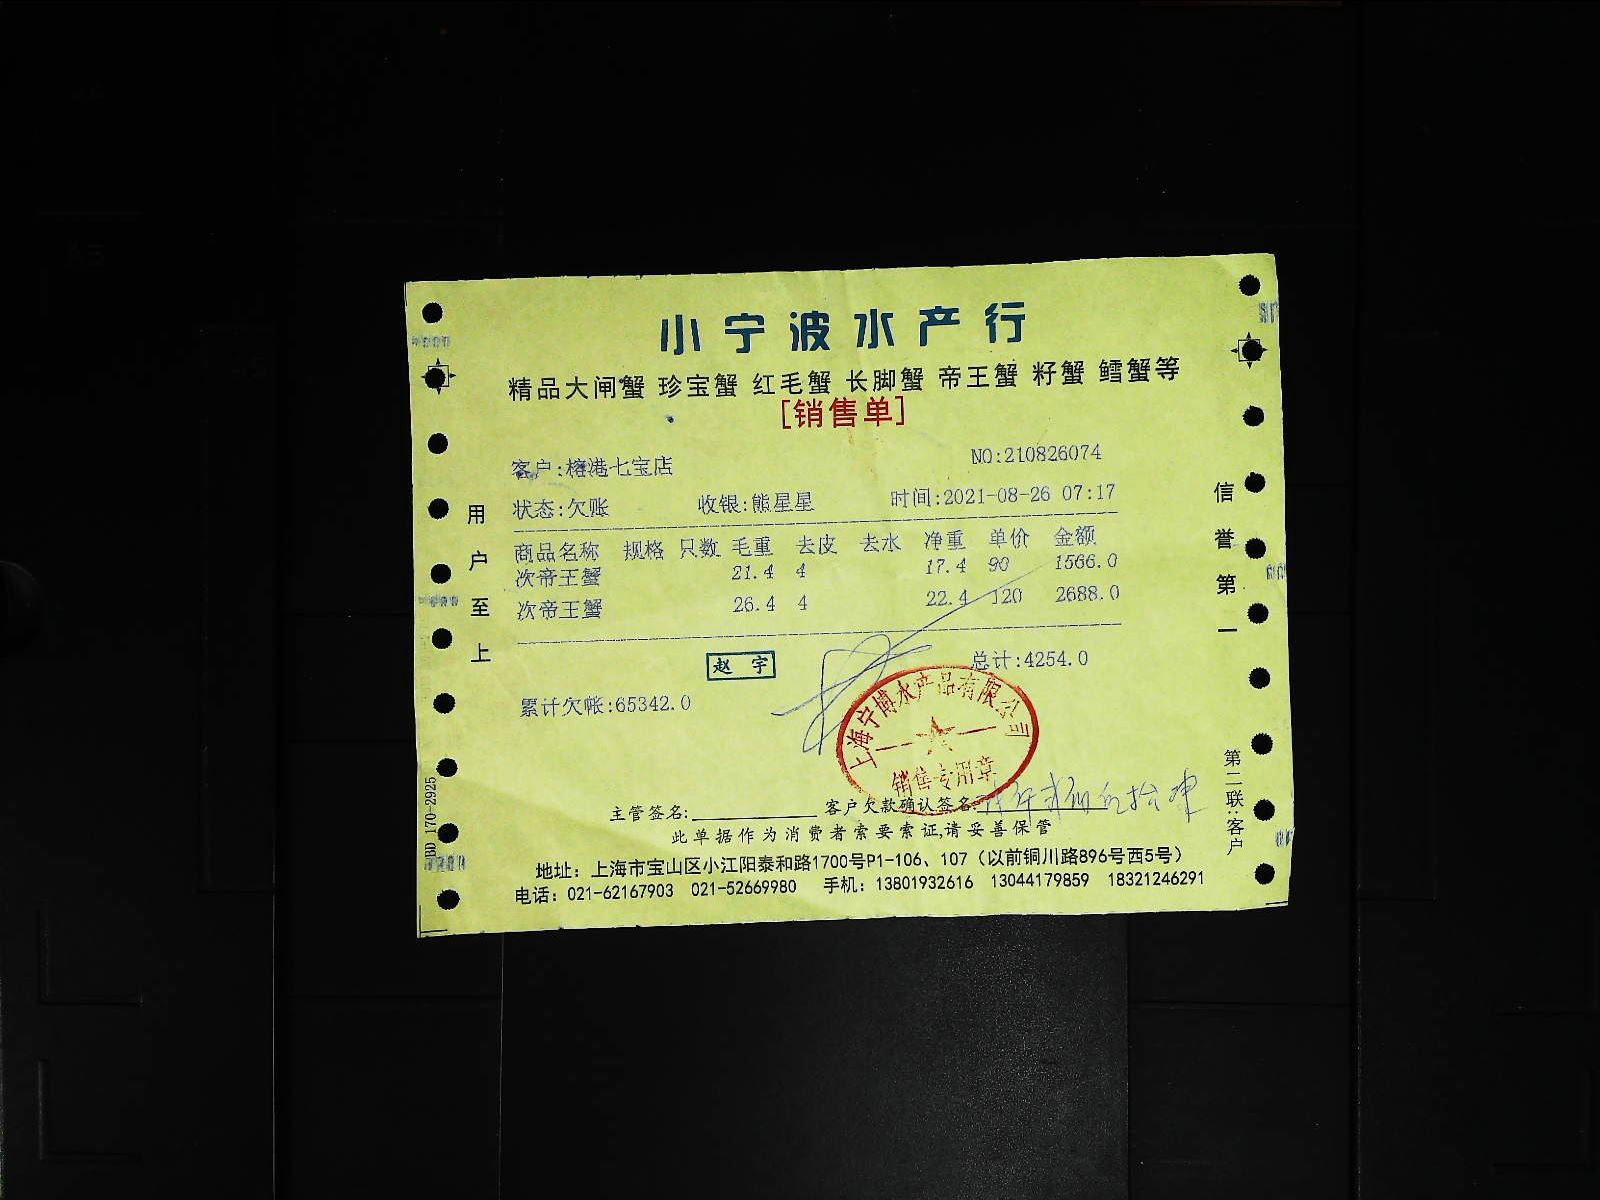 小宁波水产行
精品大闸蟹 珍宝蟹 红毛蟹 长脚蟹 帝王蟹 籽蟹 鳕蟹等
[销售单]
客户:榕港七宝店 NO:210826074
状态:欠账 收银:熊星星 时间:2021-08-26 07:17
商品名称 规格 只数 毛重 去皮 去水 净重 单价 金额
次帝王蟹 21.4 4 17.4 90 1566.0
次帝王蟹 26.4 4 22.4 120 2688.0
总计:4254.0
赵宇
累计欠帐:65342.0
上海宁博水产品有限公司
销售专用章
主管签名: 客户欠款确认签名:
此单据作为消费者索要索证,请妥善保管
地址：上海市宝山区小江阳泰和路1700号P1-106、107（以前铜川路896号西5号）
电话：021-62167903 021-52669980 手机：13801932616 13044179859 18321246291
用户至上
信誉第一
第二联:客户
BD 170-2925